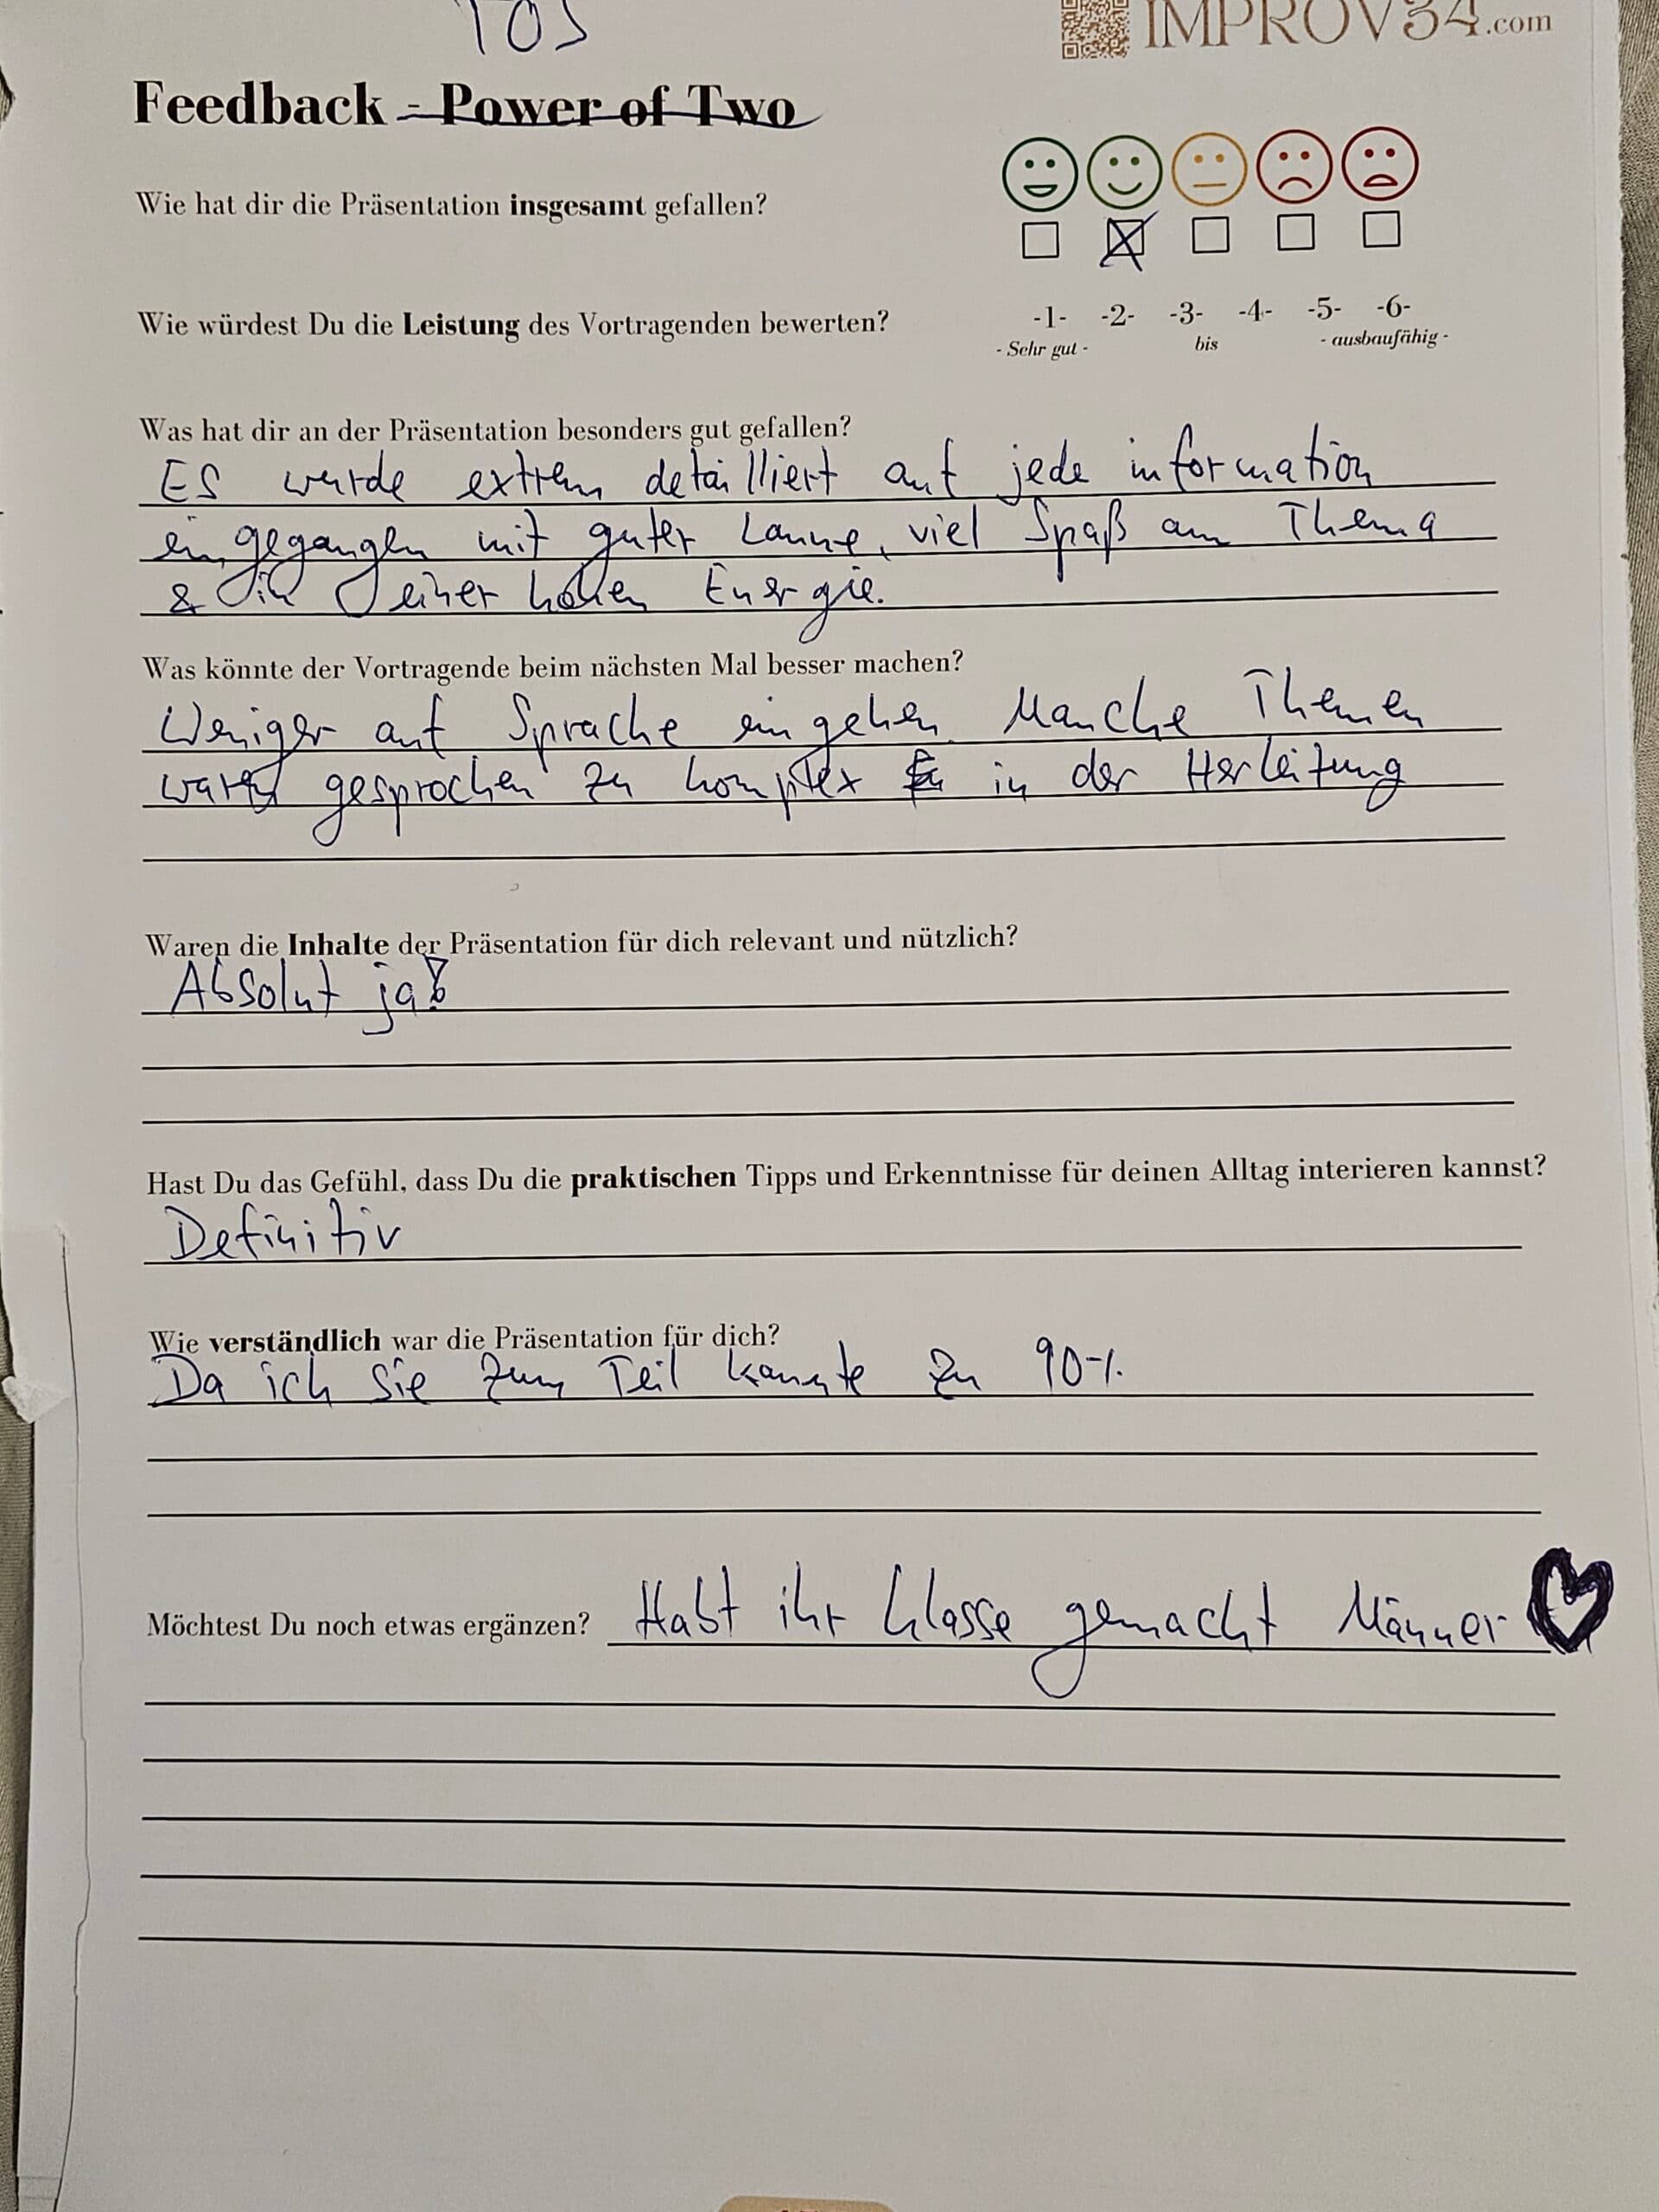 TOS
IMPROV34.com
Feedback - Power of Two
Wie hat dir die Präsentation insgesamt gefallen?
Wie würdest Du die Leistung des Vortragenden bewerten?
-1- -2- -3- -4- -5- -6-
- Sehr gut - bis - ausbaufähig -
Was hat dir an der Präsentation besonders gut gefallen?
ES wurde extrem detailliert auf jede information
eingegangen mit guter Laune, viel Spaß am Thema
& in einer hohen Energie.
Was könnte der Vortragende beim nächsten Mal besser machen?
Weniger auf Sprache eingehen. Manche Themen
waren gesprochen zu komplex in der Herleitung
Waren die Inhalte der Präsentation für dich relevant und nützlich?
Absolut ja!
Hast Du das Gefühl, dass Du die praktischen Tipps und Erkenntnisse für deinen Alltag interieren kannst?
Definitiv
Wie verständlich war die Präsentation für dich?
Da ich sie zum Teil kannte zu 90%
Möchtest Du noch etwas ergänzen? Habt ihr klasse gemacht Männer